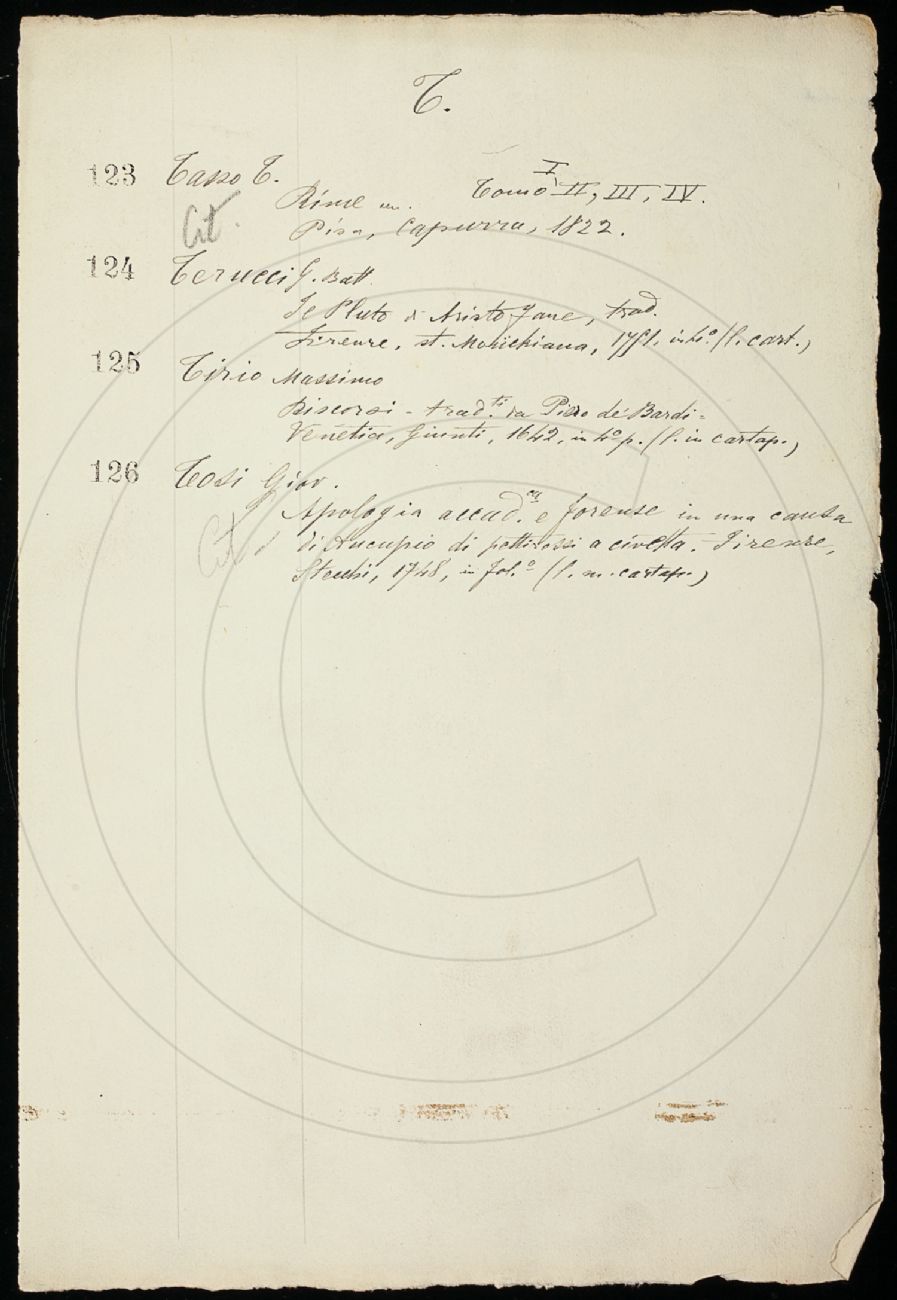 T.
123 Tasso T.
Rime Tomo I, II, III, IV.
Cit.
Pisa, Capurra, 1822.
124 Terucci G. Batt.
Il Pluto di Aristofane, trad.
Firenze, st. Mouckiana, in 4º. (l. cart.)
125 Tirio Massimo
Discorsi - trad.ti da Piero de' Bardi -
Venetia, Giunti, 1642, in 4º p. (l. in cartap.)
126 Tosi Giov.
Apologia accad.ca e forense in una causa
Cit.
di Aucupio di pettirossi a civetta. - Firenze,
Stecchi, 1748, in fol.º (l. m. cartap.)